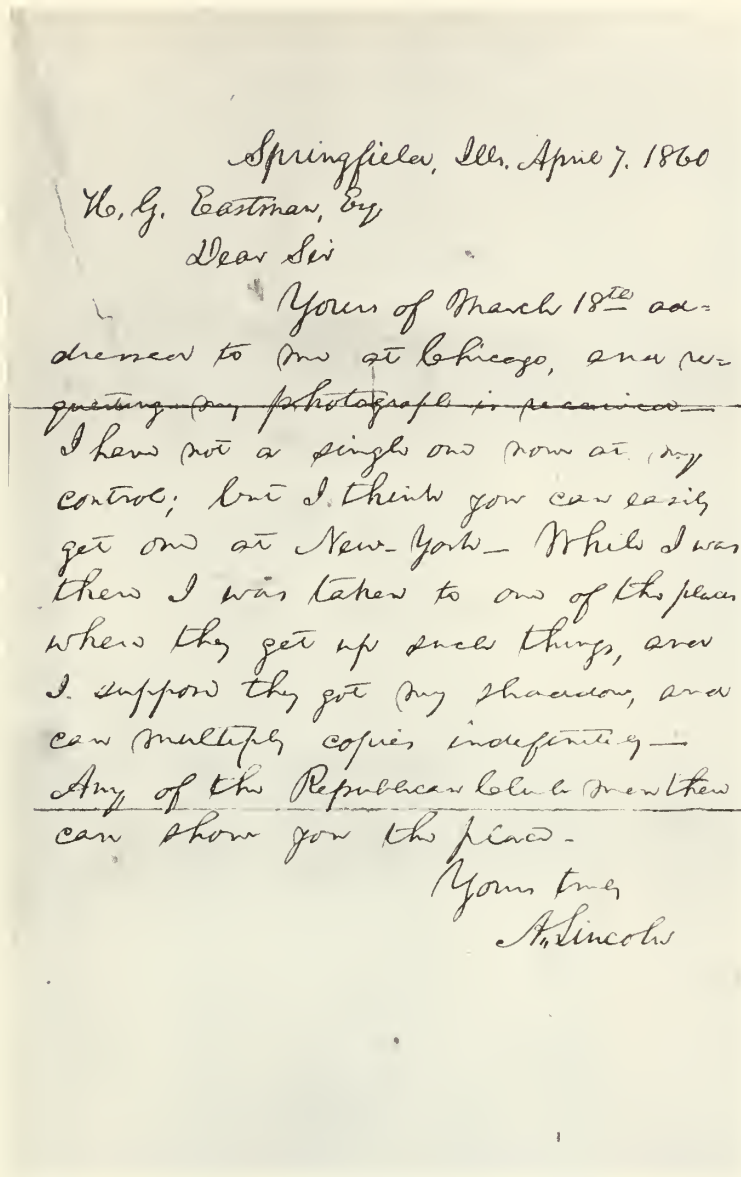 Springfield, Ills. April 7. 1860
H. G. Eastman, Esq
Dear Sir
Yours of March 18th ad=
dressed to me at Chicago, and re=
questing my photograph is received—
I have not a single one now at my
control; but I think you can easily
get one at New-York— While I was
there I was taken to one of the places
where they get up such things, and
I suppose they got my shaddow, and
can multiply copies indefinitely—
Any of the Republican Club men there
can show you the place—
Yours truly
A. Lincoln